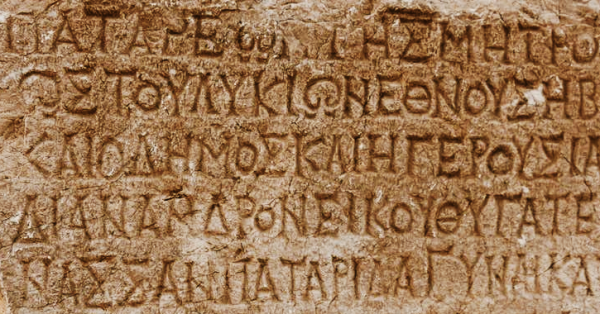 ΠΑΤΑΡΕΩΝΤΗΣΜΗΤΡΟ
ΩΣΤΟΥΛΥΚΙΩΝΕΘΝΟΥΣΗΒ
ΚΑΙΟΔΗΜΟΣΚΑΙΗΓΕΡΟΥΣΙΑ
ΔΙΑΝΑΝΔΡΟΝΕΙΚΟΥΘΥΓΑΤΕ
ΝΑΣΣΑΝΠΑΤΑΡΙΔΑΓΥΝΑΙΚΑ